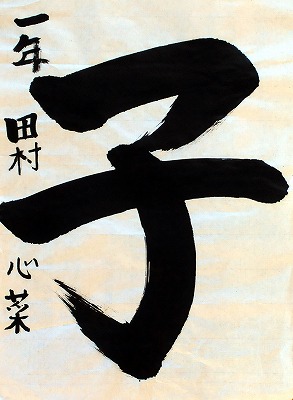 子
一年 田村 心菜